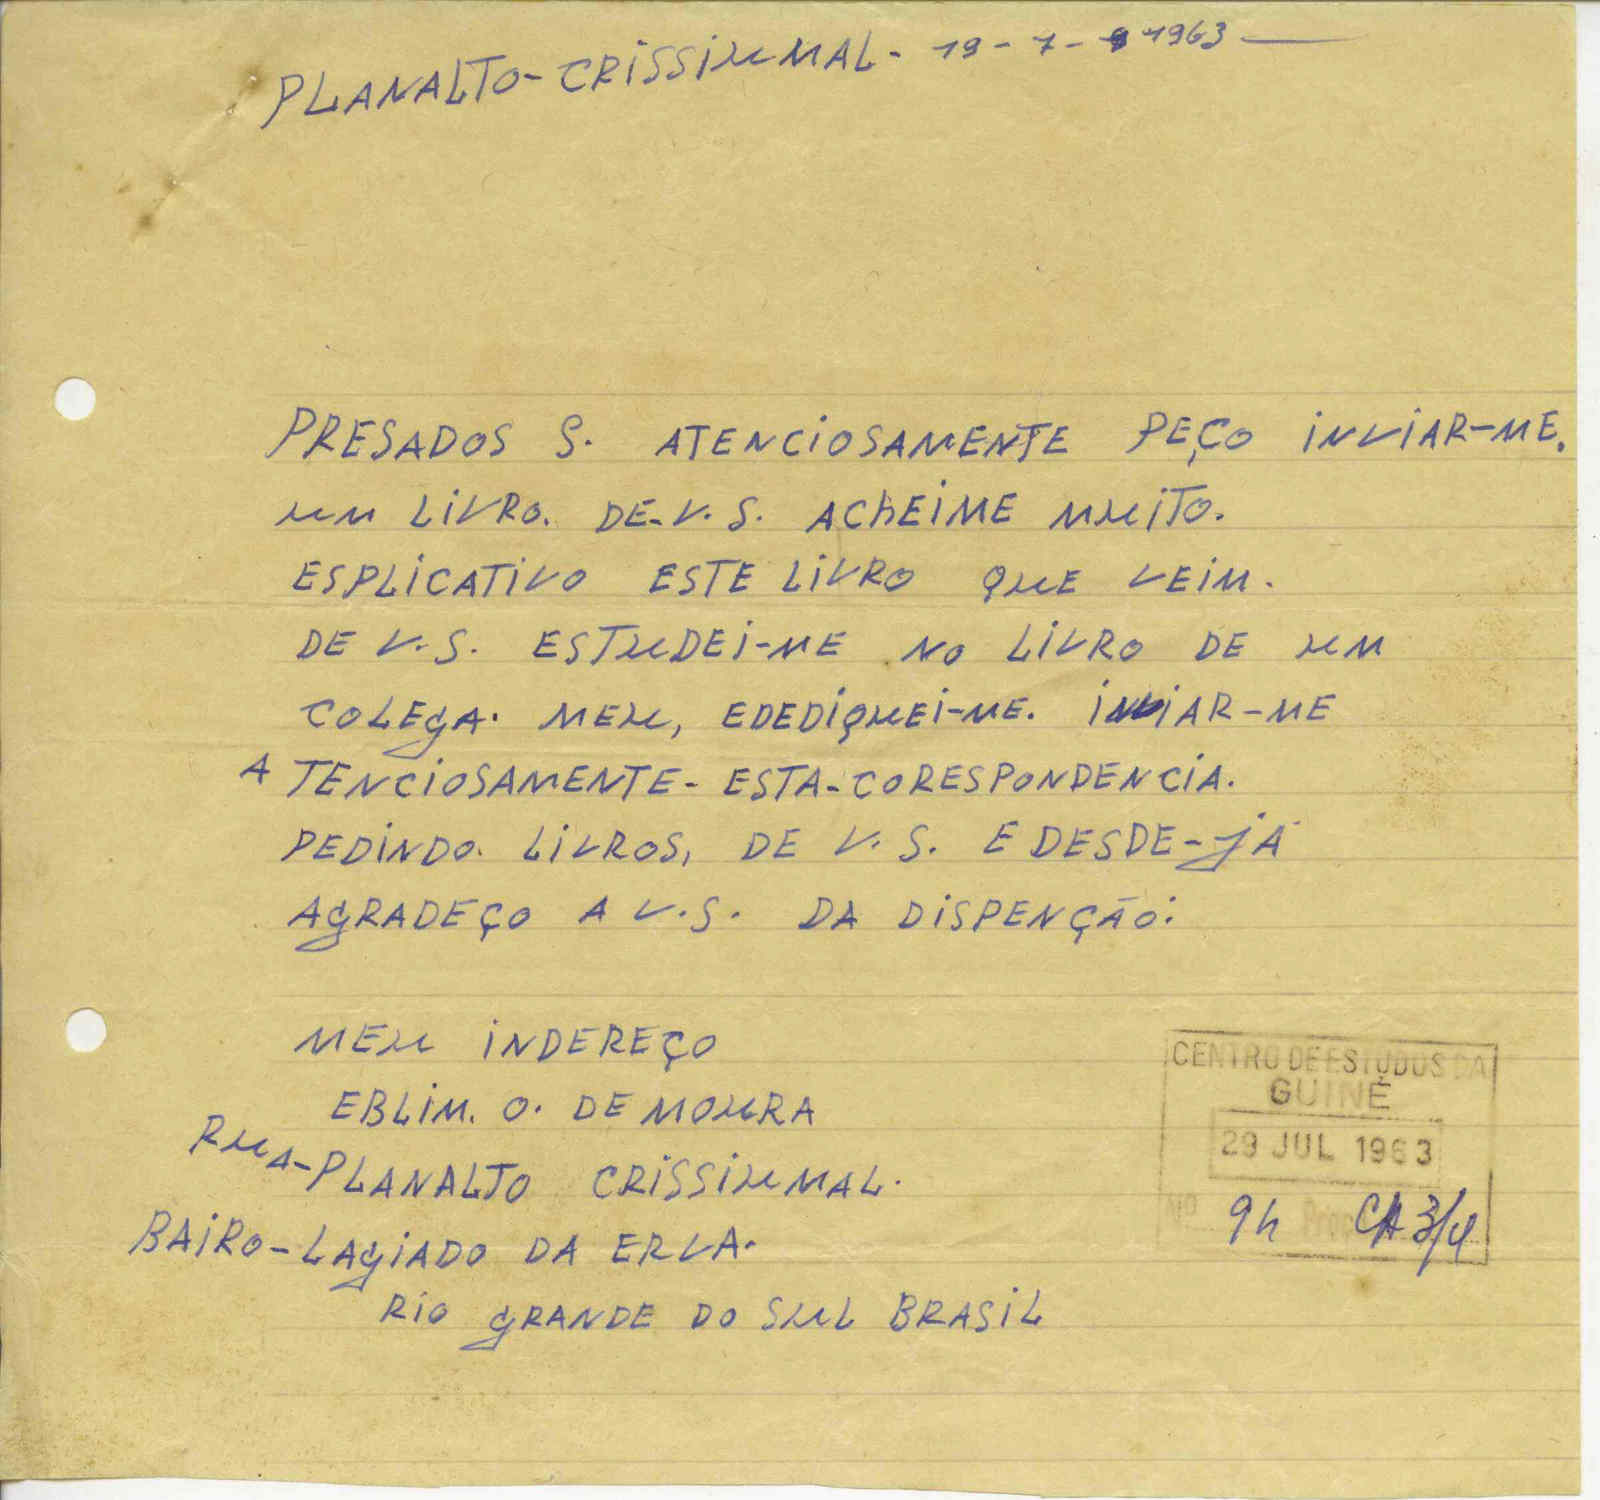 PLANALTO-CRISSIUMAL- 19-7-1963
PRESADOS S. ATENCIOSAMENTE PEÇO INVIAR-ME.
UM LIVRO. DE-V.S. ACHEIME MUITO.
ESPLICATIVO ESTE LIVRO QUE VEIM.
DE V.S. ESTUDEI-ME NO LIVRO DE UM
COLEGA. MEU, EDEDIQUEI-ME. INVIAR-ME
ATENCIOSAMENTE- ESTA-CORESPONDENCIA.
PEDINDO. LIVROS, DE V.S. E DESDE-JÁ
AGRADEÇO A V.S. DA DISPENÇÃO:
MEU INDEREÇO
EBLIM. O. DE MOURA
RUA-PLANALTO CRISSIUMAL.
BAIRO-LAGIADO DA ERVA.
RIO GRANDE DO SUL BRASIL
CENTRO DE ESTUDOS DA
GUINÉ
29 JUL 1963
Nº 94 CA 3/4